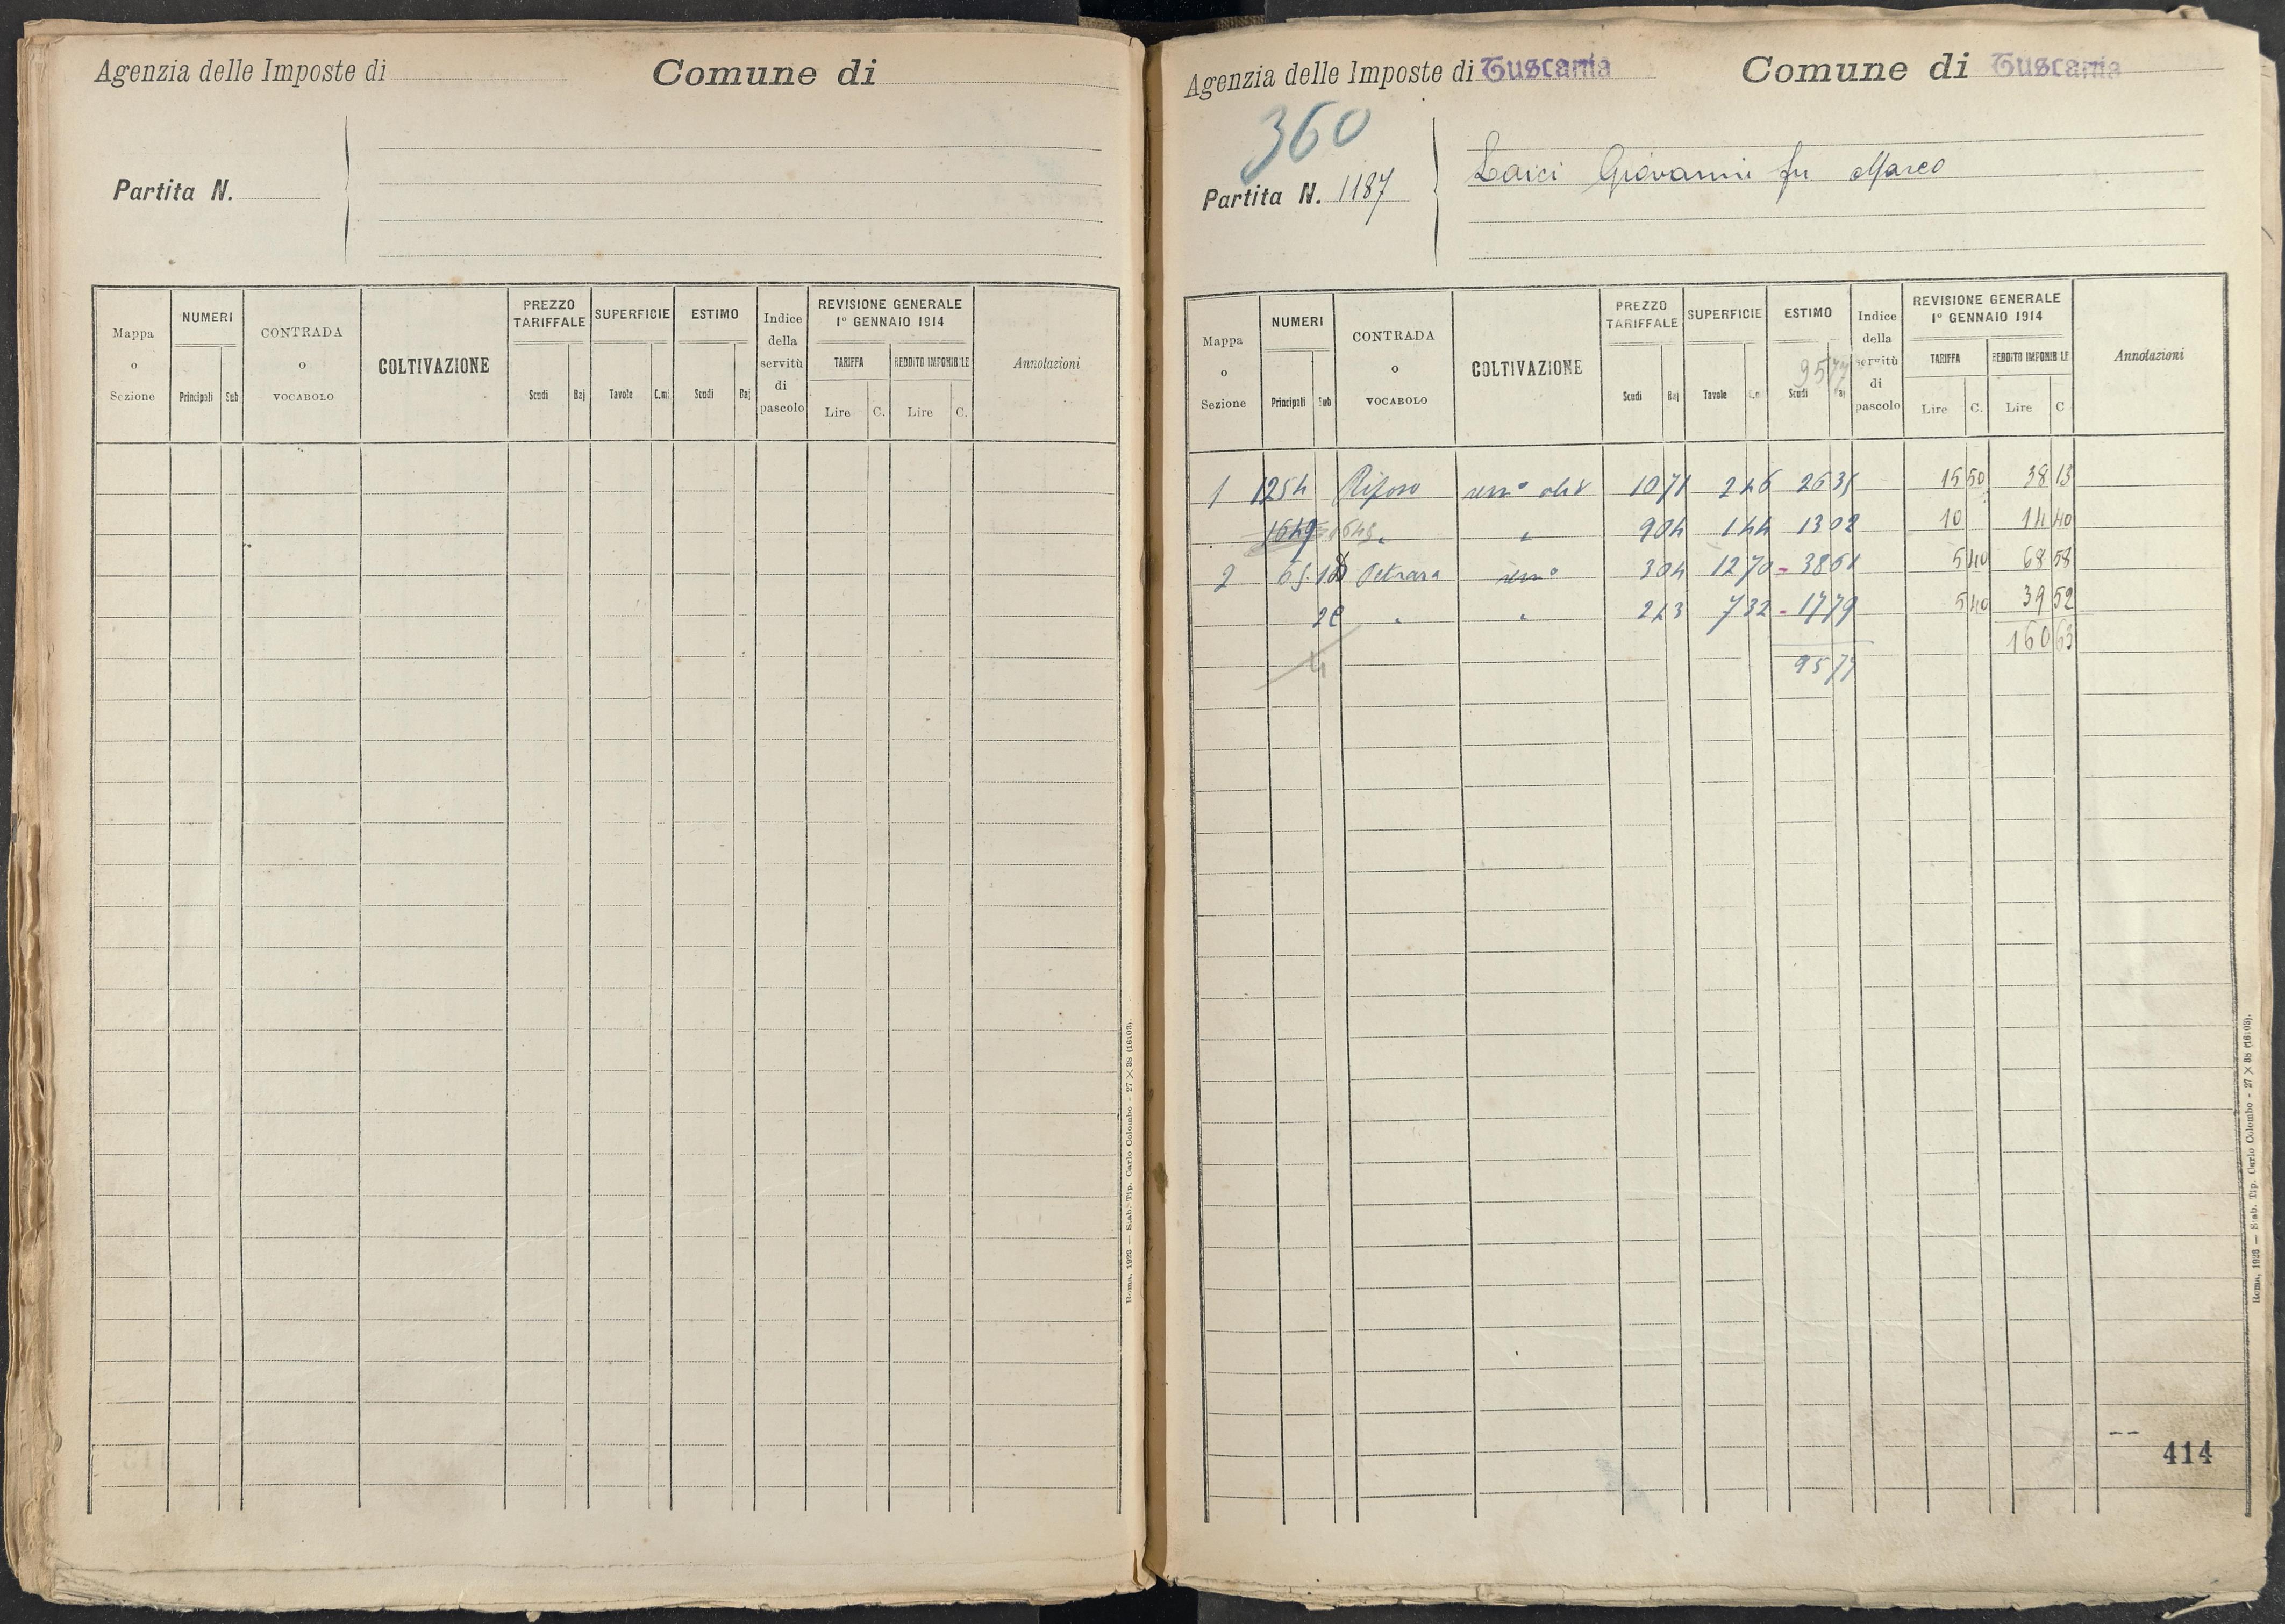 Agenzia delle Imposte di
Comune di
Partita N.
Mappa o Sezione
NUMERI
Principali Sub
CONTRADA o VOCABOLO
COLTIVAZIONE
PREZZO TARIFFALE
Scudi Baj
SUPERFICIE
Tavole C.mi
ESTIMO
Scudi Baj
Indice della servitù di pascolo
REVISIONE GENERALE
1° GENNAIO 1914
TARIFFA
Lire C.
REDDITO IMPONIBILE
Lire C.
Annotazioni
Roma, 1923 — Stab. Tip. Carlo Colombo - 27 × 38 (16103).
Agenzia delle Imposte di Tuscania
Comune di Tuscania
360
Partita N. 1187
Laici Giovanni fu Marco
Mappa o Sezione
NUMERI
Principali Sub
CONTRADA o VOCABOLO
COLTIVAZIONE
PREZZO TARIFFALE
Scudi Baj
SUPERFICIE
Tavole C.mi
ESTIMO
9577
Scudi Baj
Indice della servitù di pascolo
REVISIONE GENERALE
1° GENNAIO 1914
TARIFFA
Lire C.
REDDITO IMPONIBILE
Lire C
Annotazioni
1 1254 Riposo sem° oliv 1071 246 2635 15 50 38 13
1649 " " 904 144 1302 10 14 40
2 65 Petrara sem° 304 1270 - 3861 5 40 68 58
" " 243 732 - 1779 5 40 39 52
160 63
4 9577
Roma, 1923 — Stab. Tip. Carlo Colombo - 27 × 38 (16103).
414